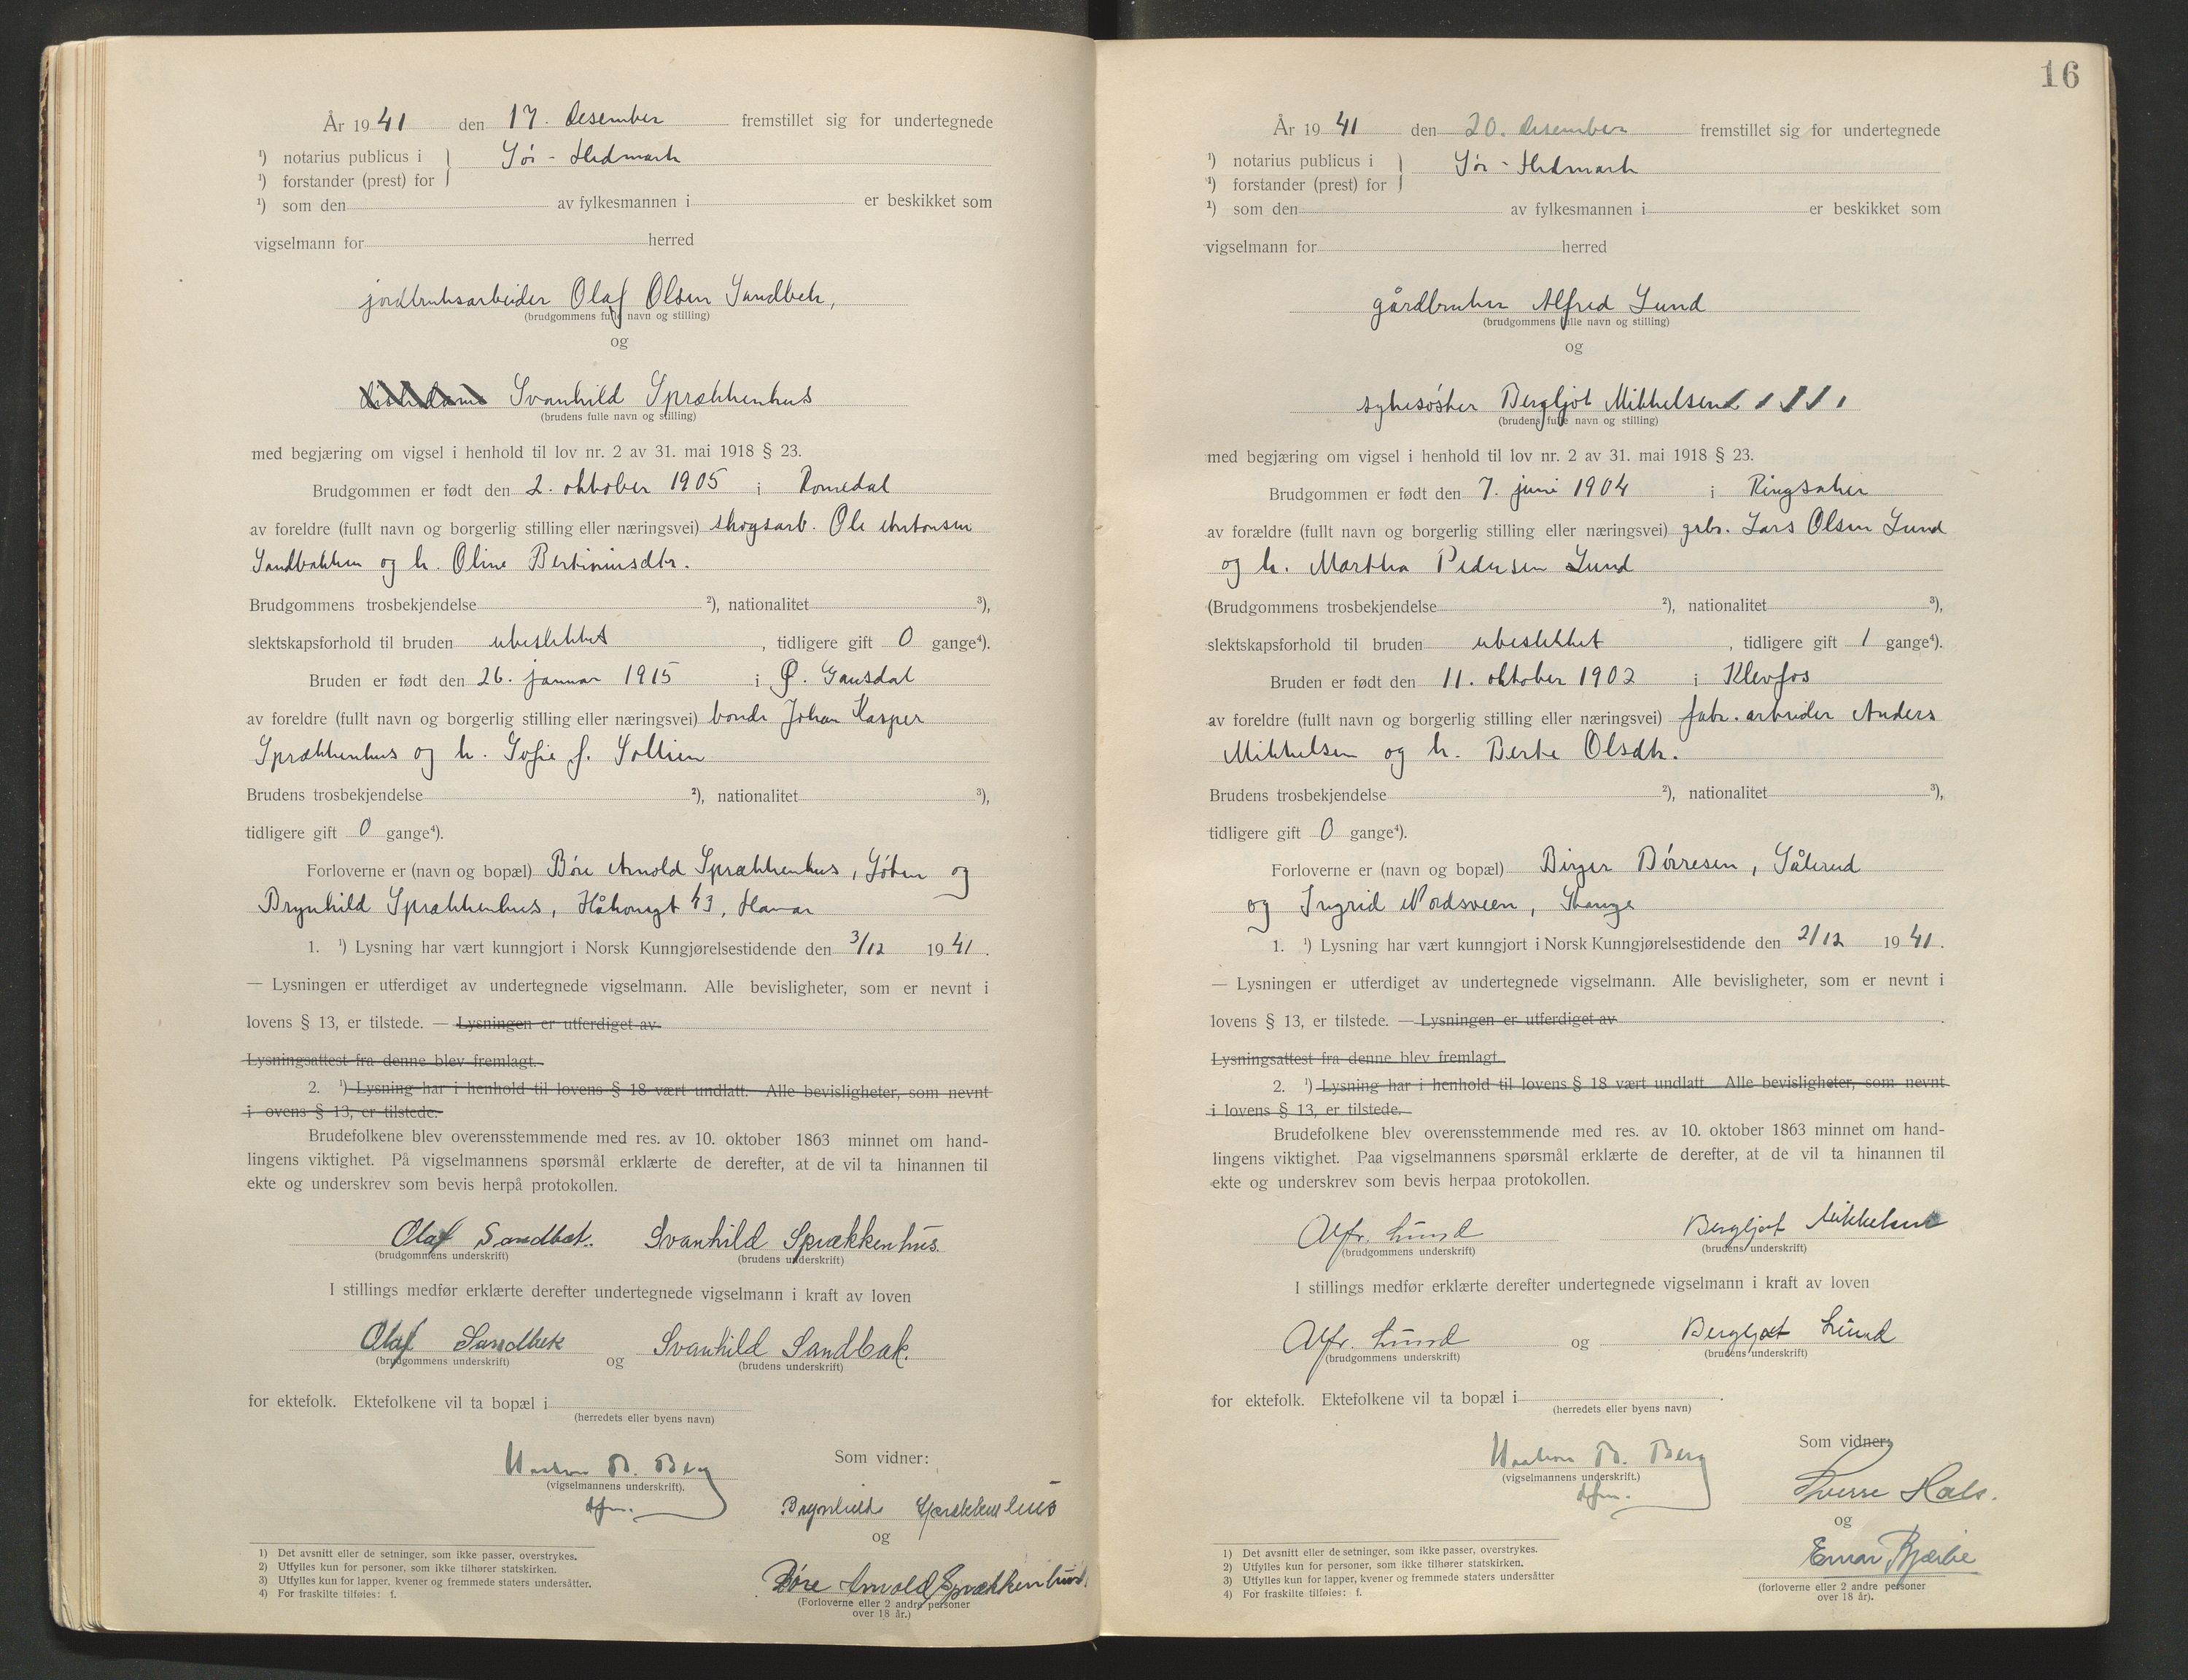 År 1941 den 17. desember fremstillet sig for undertegnede
¹) notarius publicus i } Sør-Hedmark
¹) forstander (prest) for
¹) som den av fylkesmannen i er beskikket som
vigselmann for herred
jordbruksarbeider Olaf Olsen Sandbek,
(brudgommens fulle navn og stilling)
og
Svanhild Sprækkenhus
(brudens fulle navn og stilling)
med begjæring om vigsel i henhold til lov nr. 2 av 31. mai 1918 § 23.
Brudgommen er født den 2. oktober 1905 i Romedal
av foreldre (fullt navn og borgerlig stilling eller næringsvei) skogsarb. Ole Antonsen
Sandbakken og h. Oline Bertiniusdtr.
Brudgommens trosbekjendelse ²), nationalitet ³),
slektskapsforhold til bruden ubeslektet, tidligere gift 0 gange⁴).
Bruden er født den 26. januar 1915 i Ø. Gausdal
av foreldre (fullt navn og borgerlig stilling eller næringsvei) bonde Johan Kasper
Sprækkenhus og h. Sofie f. Sollien
Brudens trosbekjendelse ²), nationalitet ³),
tidligere gift 0 gange⁴).
Forloverne er (navn og bopæl) Bóre Arnold Sprækkenhus, Góben og
Brynhild Sprækkenhus, Håkonsgt 43, Hamar
1. ¹) Lysning har vært kunngjort i Norsk Kunngjørelsestidende den 3/12 1941.
— Lysningen er utferdiget av undertegnede vigselmann. Alle bevisligheter, som er nevnt i
lovens § 13, er tilstede. — Lysningen er utferdiget av
Lysningsattest fra denne blev fremlagt.
2. ¹) Lysning har i henhold til lovens § 18 vært undlatt. Alle bevisligheter, som nevnt
i ovens § 13, er tilstede.
Brudefolkene blev overensstemmende med res. av 10. oktober 1863 minnet om hand-
lingens viktighet. På vigselmannens spørsmål erklærte de derefter, at de vil ta hinannen til
ekte og underskrev som bevis herpå protokollen.
Olaf Sandbæk. Svanhild Sprækkenhus.
(brudgommens underskrift) (brudens underskrift)
I stillings medfør erklærte derefter undertegnede vigselmann i kraft av loven
Olaf Sandbek og Svanhild Sandbak.
(brudgommens underskrift) (brudens underskrift)
for ektefolk. Ektefolkene vil ta bopæl i
(herredets eller byens navn)
Haakon B. Berg
(vigselmannens underskrift).
dfm.
Som vidner:
Brynhild Sprækkenhus
og
Bóre Arnold Sprækkenhus
(Forloverne eller 2 andre personer
over 18 år.)
1) Det avsnitt eller de setninger, som ikke passer, overstrykes.
2) Utfylles kun for personer, som ikke tilhører statskirken.
3) Utfylles kun for lapper, kvener og fremmede staters undersåtter.
4) For fraskilte tilføies: f.
16
År 1941 den 20. desember fremstillet sig for undertegnede
¹) notarius publicus i } Sør-Hedmark
¹) forstander (prest) for
¹) som den av fylkesmannen i er beskikket som
vigselmann for herred
gårdbruker Alfred Lund
(brudgommens fulle navn og stilling)
og
sykesøster Bergljot Mikkelsen
(brudens fulle navn og stilling)
med begjæring om vigsel i henhold til lov nr. 2 av 31. mai 1918 § 23.
Brudgommen er født den 7. juni 1904 i Ringsaker
av forældre (fullt navn og borgerlig stilling eller næringsvei) grbr. Lars Olsen Lund
og h. Martha Pedersen Lund
(Brudgommens trosbekjendelse ²), nationalitet ³),
slektskapsforhold til bruden ubeslektet, tidligere gift 1 gange⁴).
Bruden er født den 11. oktober 1902 i Klevfos
av foreldre (fullt navn og borgerlig stilling eller næringsvei) fabr. arbeider Anders
Mikkelsen og h. Berte Olsdtr.
Brudens trosbekjendelse ²), nationalitet ³),
tidligere gift 0 gange⁴).
Forloverne er (navn og bopæl) Birger Børresen, Sålerud
og Ingrid Nordsveen, Stange
1. ¹) Lysning har vært kunngjort i Norsk Kunngjørelsestidende den 2/12 1941.
— Lysningen er utferdiget av undertegnede vigselmann. Alle bevisligheter, som er nevnt i
lovens § 13, er tilstede. — Lysningen er utferdiget av
Lysningsattest fra denne blev fremlagt.
2. ¹) Lysning har i henhold til lovens § 18 vært undlatt Alle bevisligheter, som nevnt
i lovens § 13, er tilstede.
Brudefolkene blev overensstemmende med res. av 10. oktober 1863 minnet om hand-
lingens viktighet. Paa vigselmannens spørsmål erklærte de derefter, at de vil ta hinannen til
ekte og underskrev som bevis herpaa protokollen.
Alfr. Lund Bergljot Mikkelsen
(brudgommens underskrift) (brudens underskrift)
I stillings medfør erklærte derefter undertegnede vigselmann i kraft av loven
Alfr. Lund og Bergljot Lund
(brudgommens underskrift) (brudens underskrift)
for ektefolk. Ektefolkene vil ta bopæl i .
(herredets eller byens navn)
Haakon B. Berg
(vigselmannens underskrift.)
dfm.
Som vidner:
Sverre Hals.
og
Einar Bjerke
(forloverne eller 2 andre personer
over 18 år).
1) Det avsnitt eller de setninger, som ikke passer, overstrykes.
2) Utfylles kun for personer, som ikke tilhører statskirken.
3) Utfylles kun for lapper, kvener og fremmede staters undersåtter
4) For fraskilte tilføies: f.